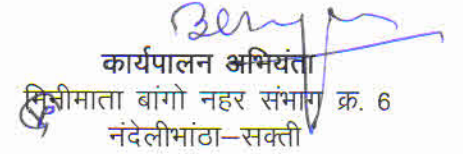 कार्यपालन अभियंता
मिनीमाता बांगो नहर संभाग क्र. 6
नंदेलीभांठा–सक्ती